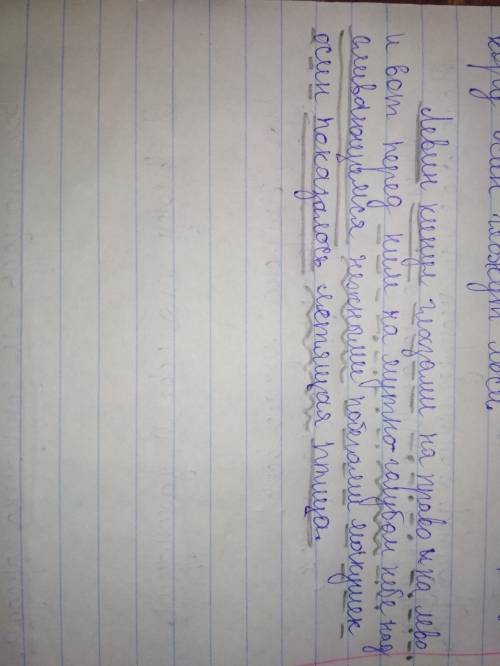 кору осин гложут лоси.
Левин кинул глазами на право и на лево
и вот перед ним на мутно-голубом небе над
сливающимися нежными побегами макушек
осин показалось летящая птица.